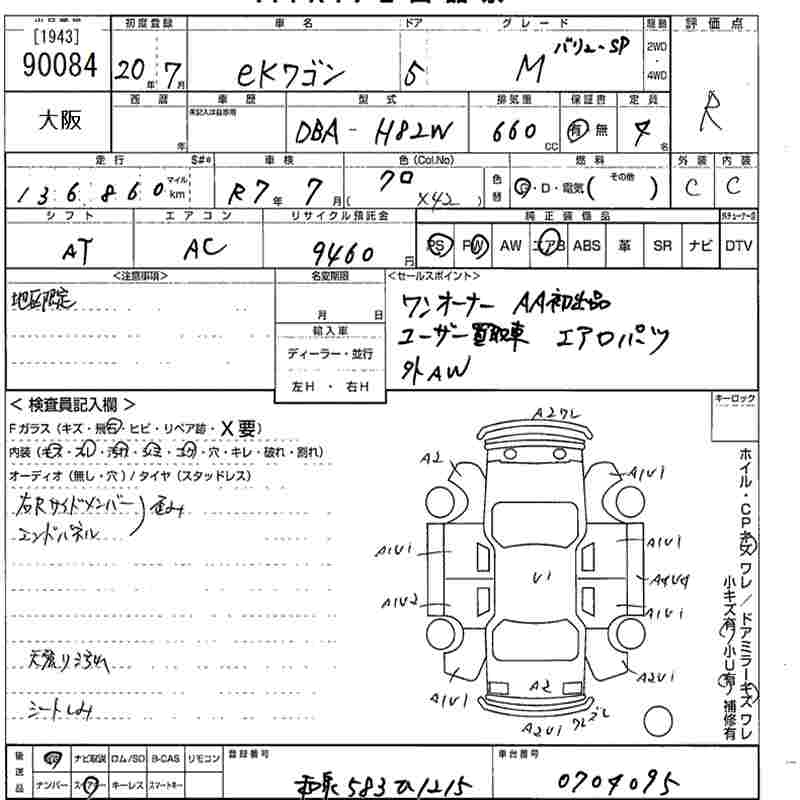 [1943]
90084
初度登録 車名 ドア グレード 駆動 評価点
20年 7月 eKワゴン 5 M バリュ-SP 2WD・4WD R
大阪
西暦 車歴 型式 排気量 保証書 定員
年 未記入は自家用 DBA-H82W 660cc 有 無 4名
走行 S#* 車検 色(Col.No) 燃料 外装 内装
136860 マイル km R7年 7月 (クロ X42) 色替 G・D・電気( その他 ) C C
シフト エアコン リサイクル預託金 純正装備品
AT AC 9460円 PS PW AW エアB ABS 革 SR ナビ DTV
<注意事項> 名変期限 <セールスポイント>
地区限定
月 日
輸入車
ディーラー・並行
左H ・ 右H
ワンオーナー AA初出品
ユーザー買取車 エアロパーツ
外AW
キーロック
<検査員記入欄>
Fガラス(キズ・飛石・ヒビ・リペア跡・X要)
内装(キズ・スレ・汚れ・シミ・コゲ・穴・キレ・破れ・割れ)
オーディオ(無し・穴)/タイヤ(スタッドレス)
右Rサイドメンバー
エンドパネル
歪み
天張り汚れ
シートしみ
A2ワレ
A2
A1U1
A1U1
A1U1
U1
A4U4
A1U2
A1U1
A2U1
A1U1
A2
A2U1 ワレズレ
ホイル・CPキズ ワレ/ドアミラーキズ ワレ
小キズ有/小U有/補修有
後送品 ナビ取説 ロム/SD B-CAS リモコン 登録番号 車台番号
ナンバー スペアキー キーレス スマートキー 583 1215 0704095